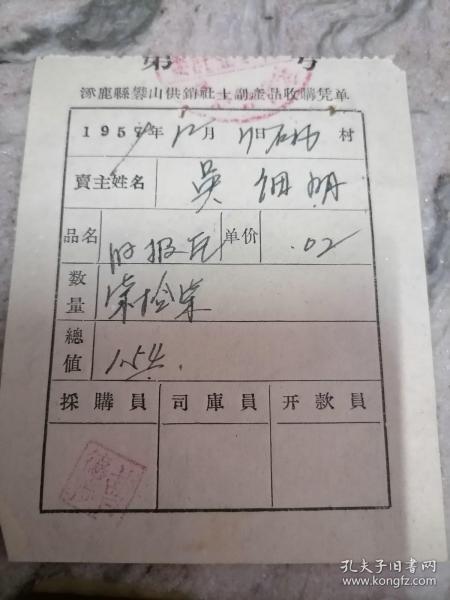 第 号
涿鹿縣礬山供銷社土副產品收購凭单
1957年12月 日 村
賣主姓名 吳 明
品名 单价 .02
数量 柒拾柒
總值 1.54
採購員 司庫員 开款員
孔夫子旧书网
www.kongfz.com